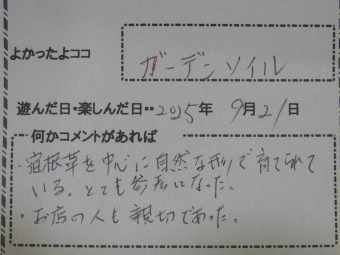 よかったよココ
ガーデンソイル
遊んだ日・楽しんだ日・・2015年 9月21日
何かコメントがあれば
・宿根草を中心に自然な形で育てられて
いる、とても参考になった。
・お店の人も親切であった。